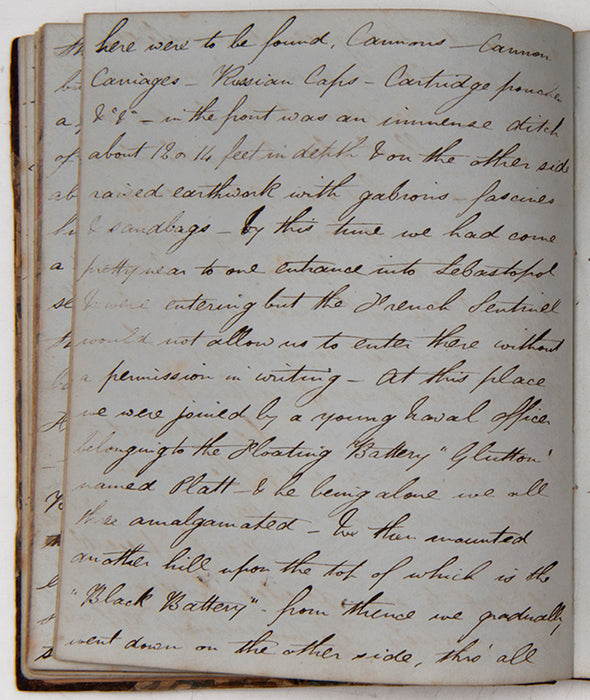 here were to be found, Cannons - Cannon
Carriages - Russian Caps - Cartridge pouches
&"&" - in the front was an immense ditch
about 12 or 14 feet in depth & on the other side
raised earthwork with gabions - fascines
& sandbags - by this time we had come
pretty near to one entrance into Sebastopol
& were entering but the French Sentinel
would not allow us to enter there without
a permission in writing - At this place
we were joined by a young Naval officer
belonging to the Floating Battery "Glutton"
named Platt - & he being alone we all
three amalgamated - We then mounted
another hill upon the top of which is the
"Black Battery" - from thence we gradually
went down on the other side, thro' all